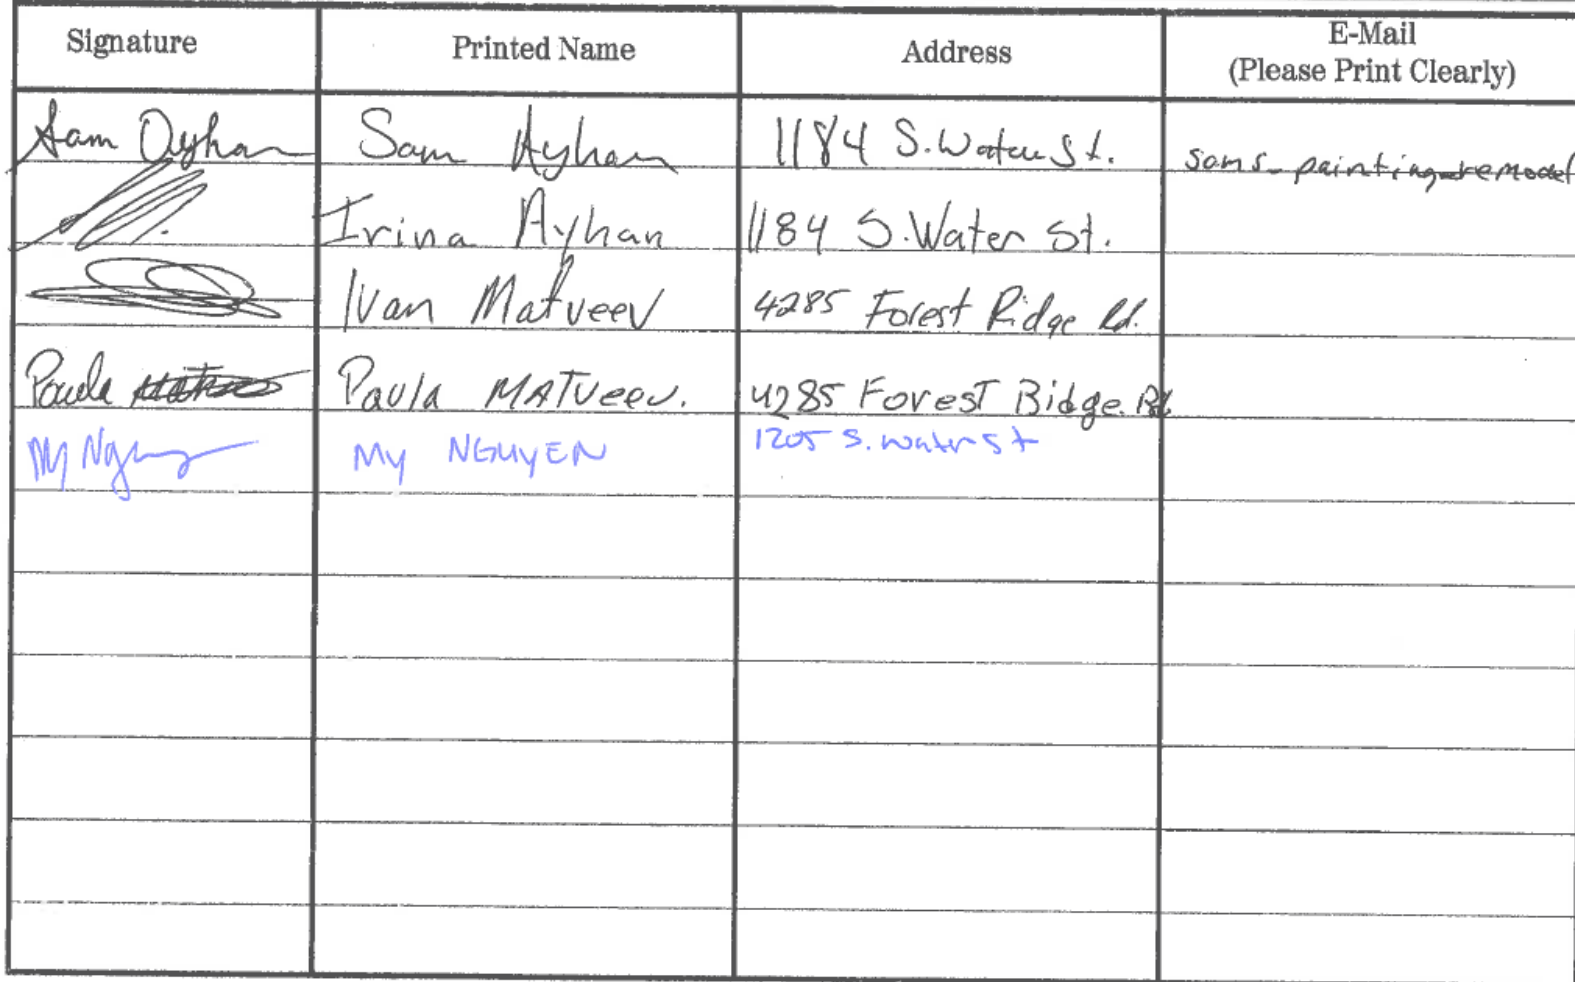 Signature Printed Name Address E-Mail
(Please Print Clearly)
Sam Ayhan Sam Ayhan 1184 S. Water St. sams_painting_remodel
Irina Ayhan 1184 S. Water St.
Ivan Matveev 4285 Forest Ridge Rd.
Paula Paula MATVeev. 4285 Forest Bidge. Rd.
My Nguy My NGUYEN 1205 S. water St